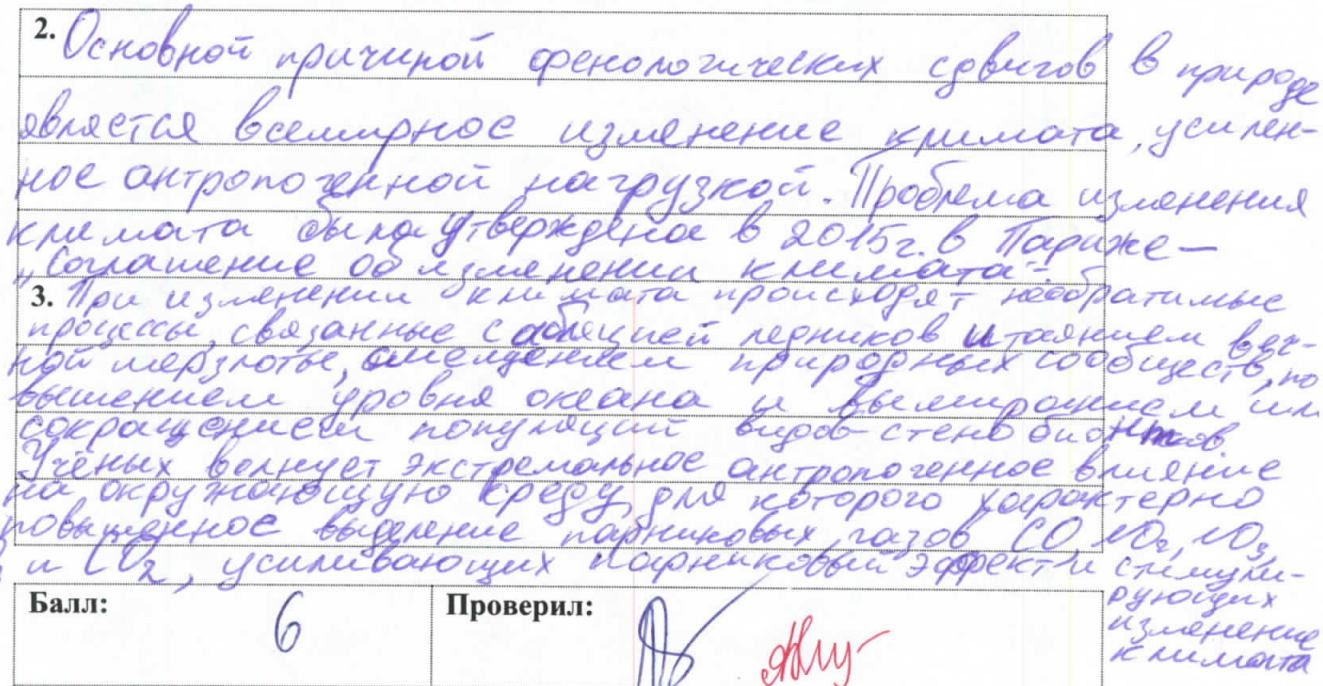 2. Основной причиной фенологических сдвигов в природе
является всемирное изменение климата, усилен-
ное антропогенной нагрузкой. Проблема изменения
климата была утверждена в 2015г. в Париже —
"Соглашение об изменении климата".
3. При изменении климата происходят необратимые
процессы, связанные с абляцией ледников и таянием веч-
ной мерзлоты, смещением природных сообществ, по
вышением уровня океана и вымиранием или
сокращением популяций видов-стенобионтов.
Учёных волнует экстремальное антропогенное влияние
на окружающую среду, для которого характерно
повышенное выделение парниковых газов CO,
и CO2, усиливающих парниковый эффект и стимули-
рующих
изменение
климата
Балл: 6 Проверил: